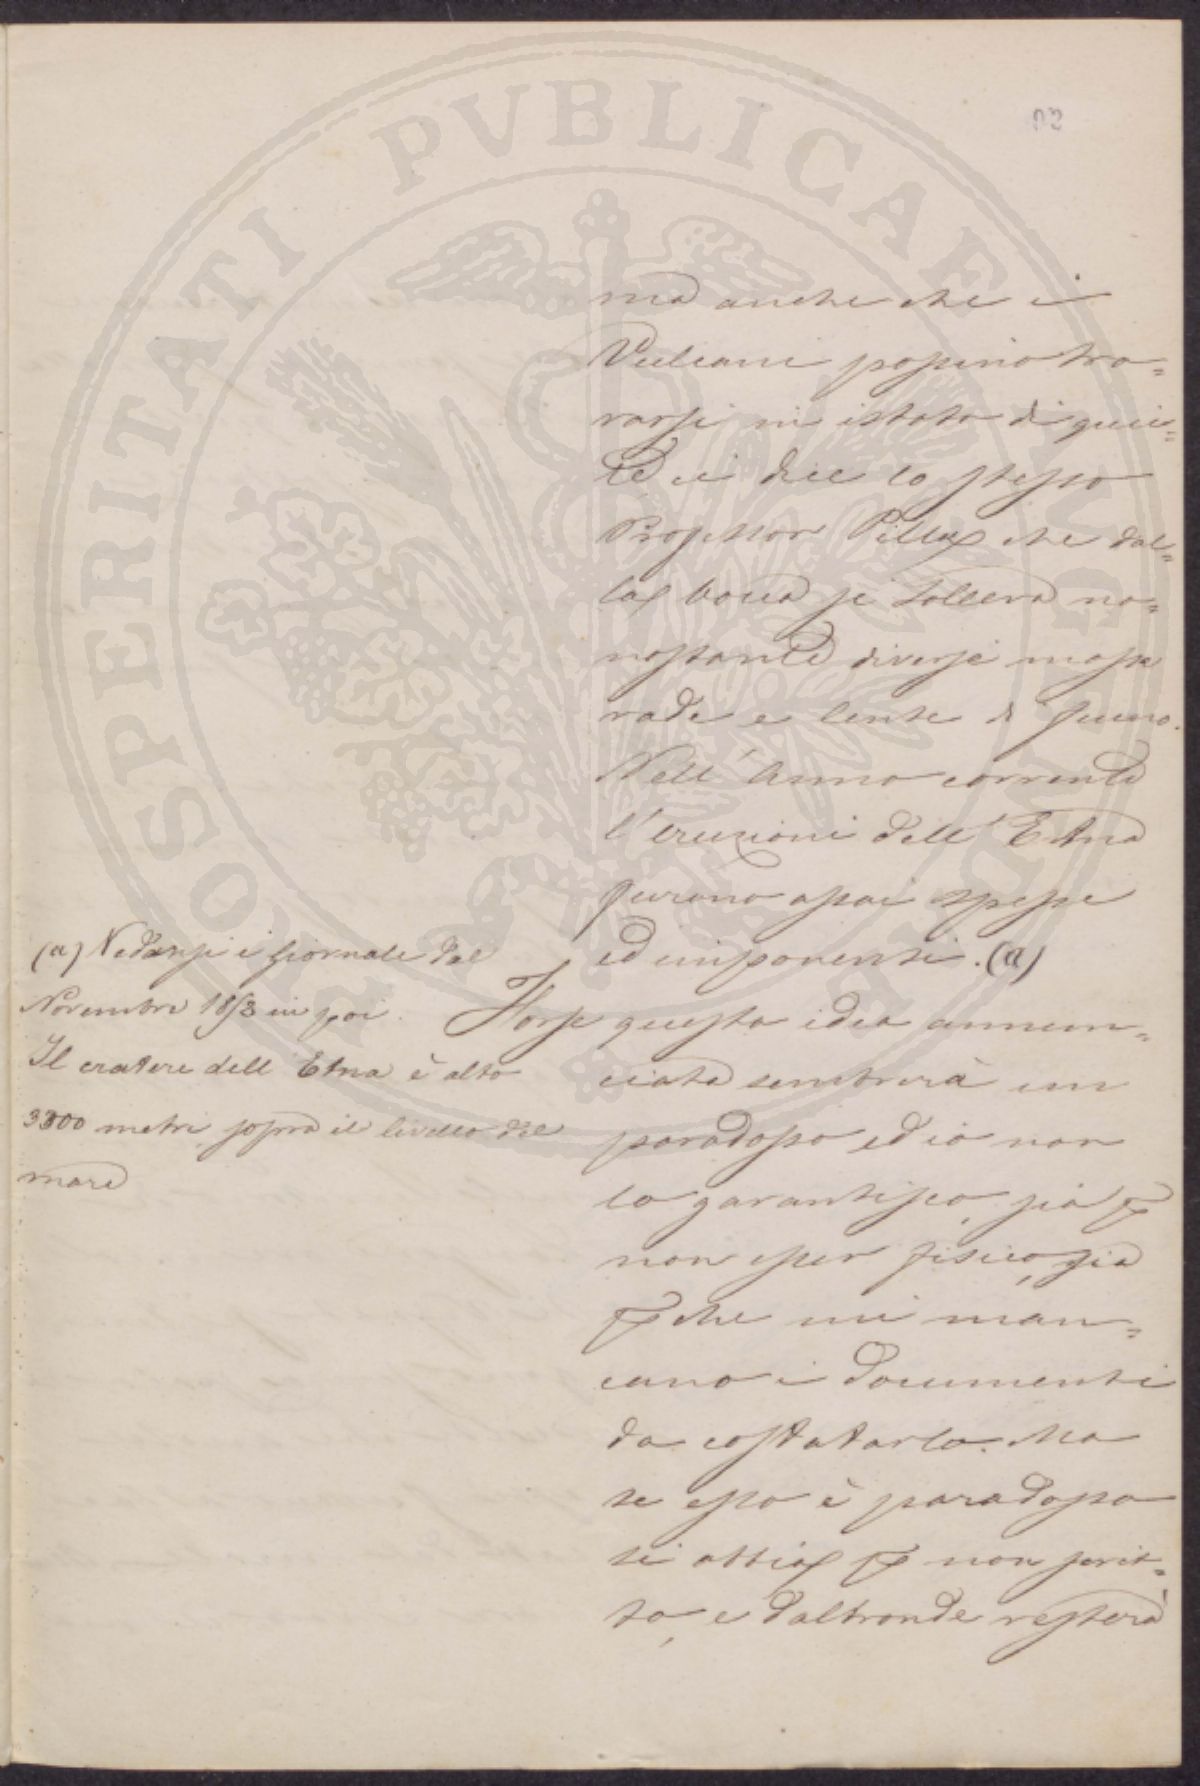 92
ma anche che i
Vulcani possino tro=
varsi in istato di quie=
te ci dice lo stesso
Professor Pilla che dal=
la bocca si solleva no=
nostante diverse masse
rade e lente di fumo.
Nell'Anno corrente
l'eruzioni dell'Etna
furono assai spesse
ed imponenti. (a)
Forse questa idea annun=
ciata sembrerà un
paradosso ed io non
lo garantisco, sia p
non esser fisico, sia
pche mi man=
cano i documenti
da costatarlo. Ma
se esso è paradosso
si abbia p non scrit=
to, e daltronde resterà
(a) Vedansi i Giornali dal
Novembre 1853 in poi.
Il cratere dell Etna è alto
3300 metri sopra il livello del
mare
PROSPERITATI PVBLICAE AVGENDAE